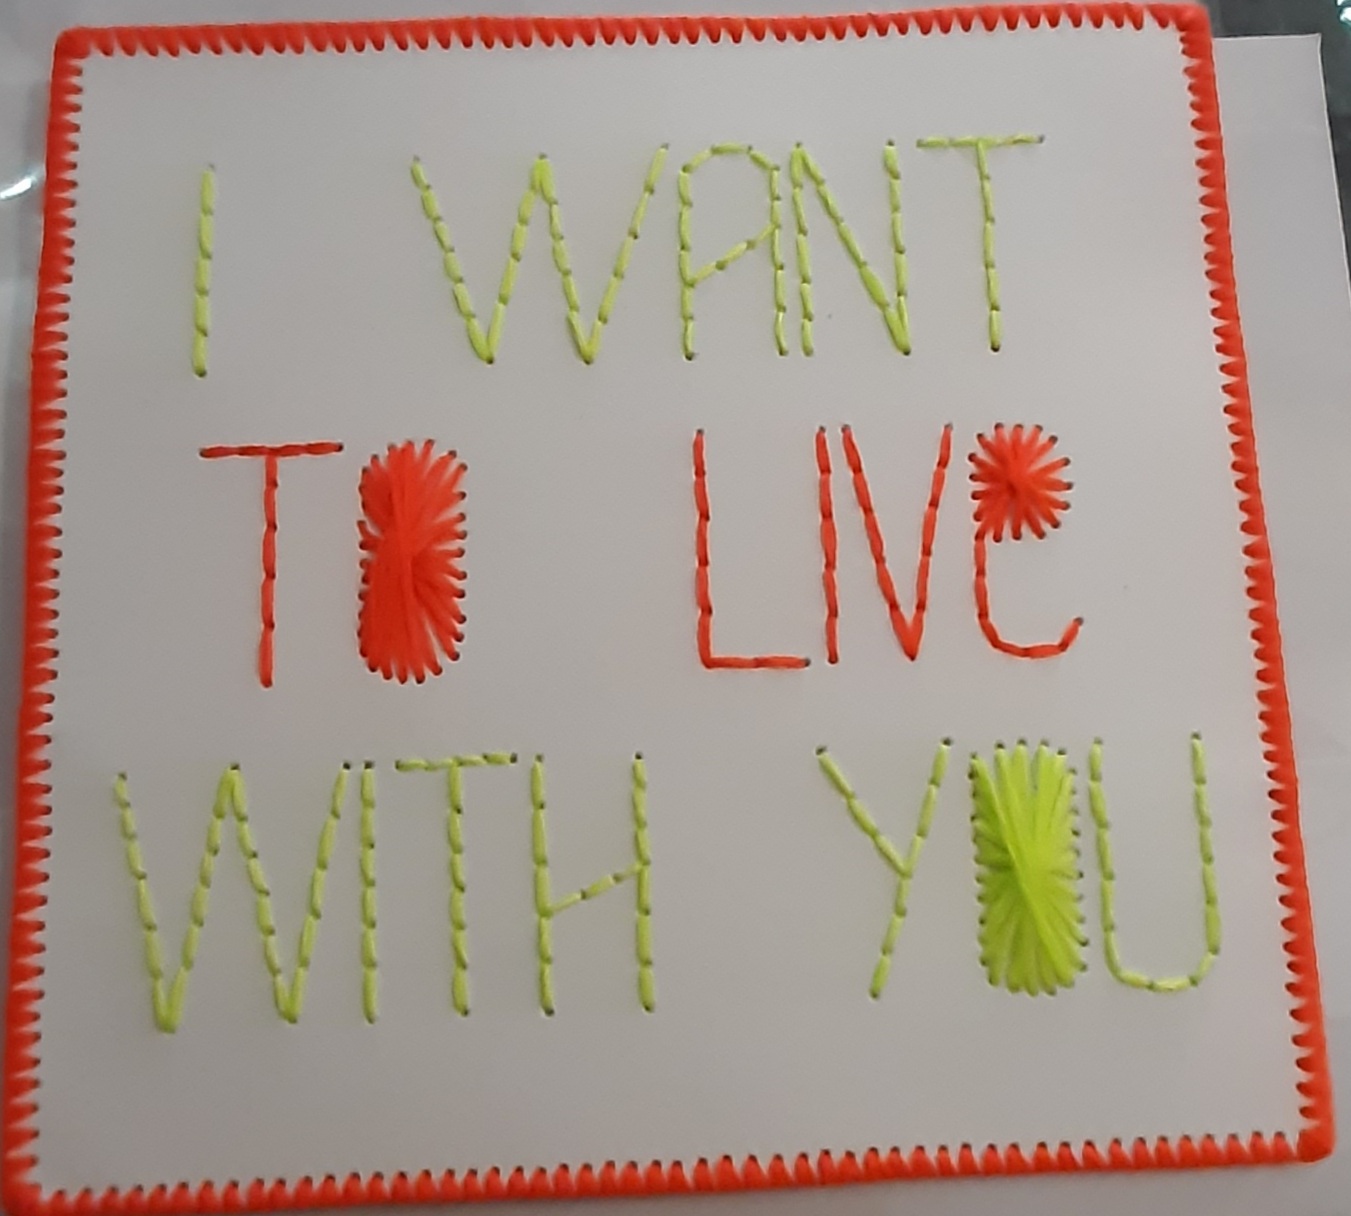 I WANT
TO LIVe
WITH YOU